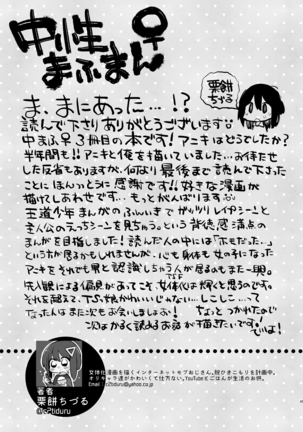 中性
まふまん♀
栗餅
ちづる
ま、まにあった…!?
読んで下さりありがとうございます
中まふ♀3冊目の本です!アニキはどうでしたか?
半年間も!!アニキと俺を描いていました…お待たせ
した反省もありますが、何より最後まで読んで下さった
ことにほんっとうに感謝です!!好きな漫画が
描けてしあわせです…もっとがんばります
王道少年まんがのふんいきでガッツリレイプシーンと
主人公のえっちシーンを見ちゃう。という背徳感満点の
まんがを目指しました!読んだ人の中には「ホモだった…」
という方が居るかもしれませんが、心も身体も女の子になった
アニキをそれでも男と認識しちゃう人が居るのもまた一興。
先入観による偏見があってこそ、女体化は輝くと思うのです。
それを超えて、TS娘かわいいじゃない…しこしこ…って
なった人はまた次もお会いしましょう!
ちょっとつかれたので
次はかるく読めるお話が描きたいです!
でいは!
著者
栗餅ちづる
@s2tiduru
女体化漫画を描くインターネットモブおじさん。脱ひきこもりを計画中。
オリキャラ達がかわいくて仕方ない。YouTubeとごはんが生活のお供。
Email:s2tiduru@yahoo.co.jp